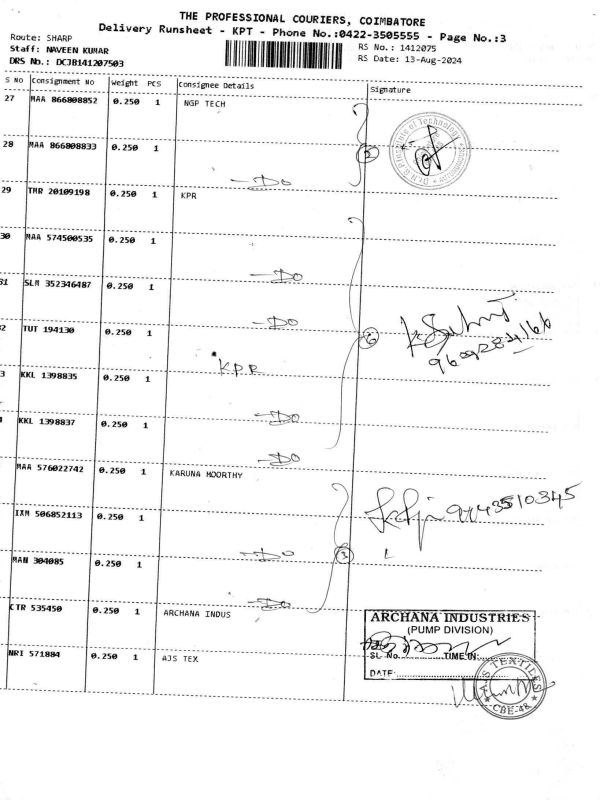 THE PROFESSIONAL COURIERS, COIMBATORE
Delivery Runsheet - KPT - Phone No.:0422-3505555 - Page No.:3
Route: SHARP
Staff: NAVEEN KUMAR
DRS No.: DCJB141207503
RS No.: 1412075
RS Date: 13-Aug-2024
S No Consignment No Weight PCS Consignee Details Signature
27 MAA 866808852 0.250 1 NGP TECH
28 MAA 866808833 0.250 1 -Do
29 TMR 20109198 0.250 1 KPR
30 MAA 574500535 0.250 1 -Do
31 SLM 352346487 0.250 1 -Do
2 TUT 194130 0.250 1 KPR
3 KKL 1398835 0.250 1 -Do
KKL 1398837 0.250 1 -Do
MAA 576022742 0.250 1 KARUNA MOORTHY
9443510345
IXM 506852113 0.250 1 -Do
MAN 304085 0.250 1 -Do
CTR 535450 0.250 1 ARCHANA INDUS
ARCHANA INDUSTRIES
(PUMP DIVISION)
SL No. TIME IN:
DATE:
NRI 571884 0.250 1 AJS TEX
TEXTILES
CBE-48